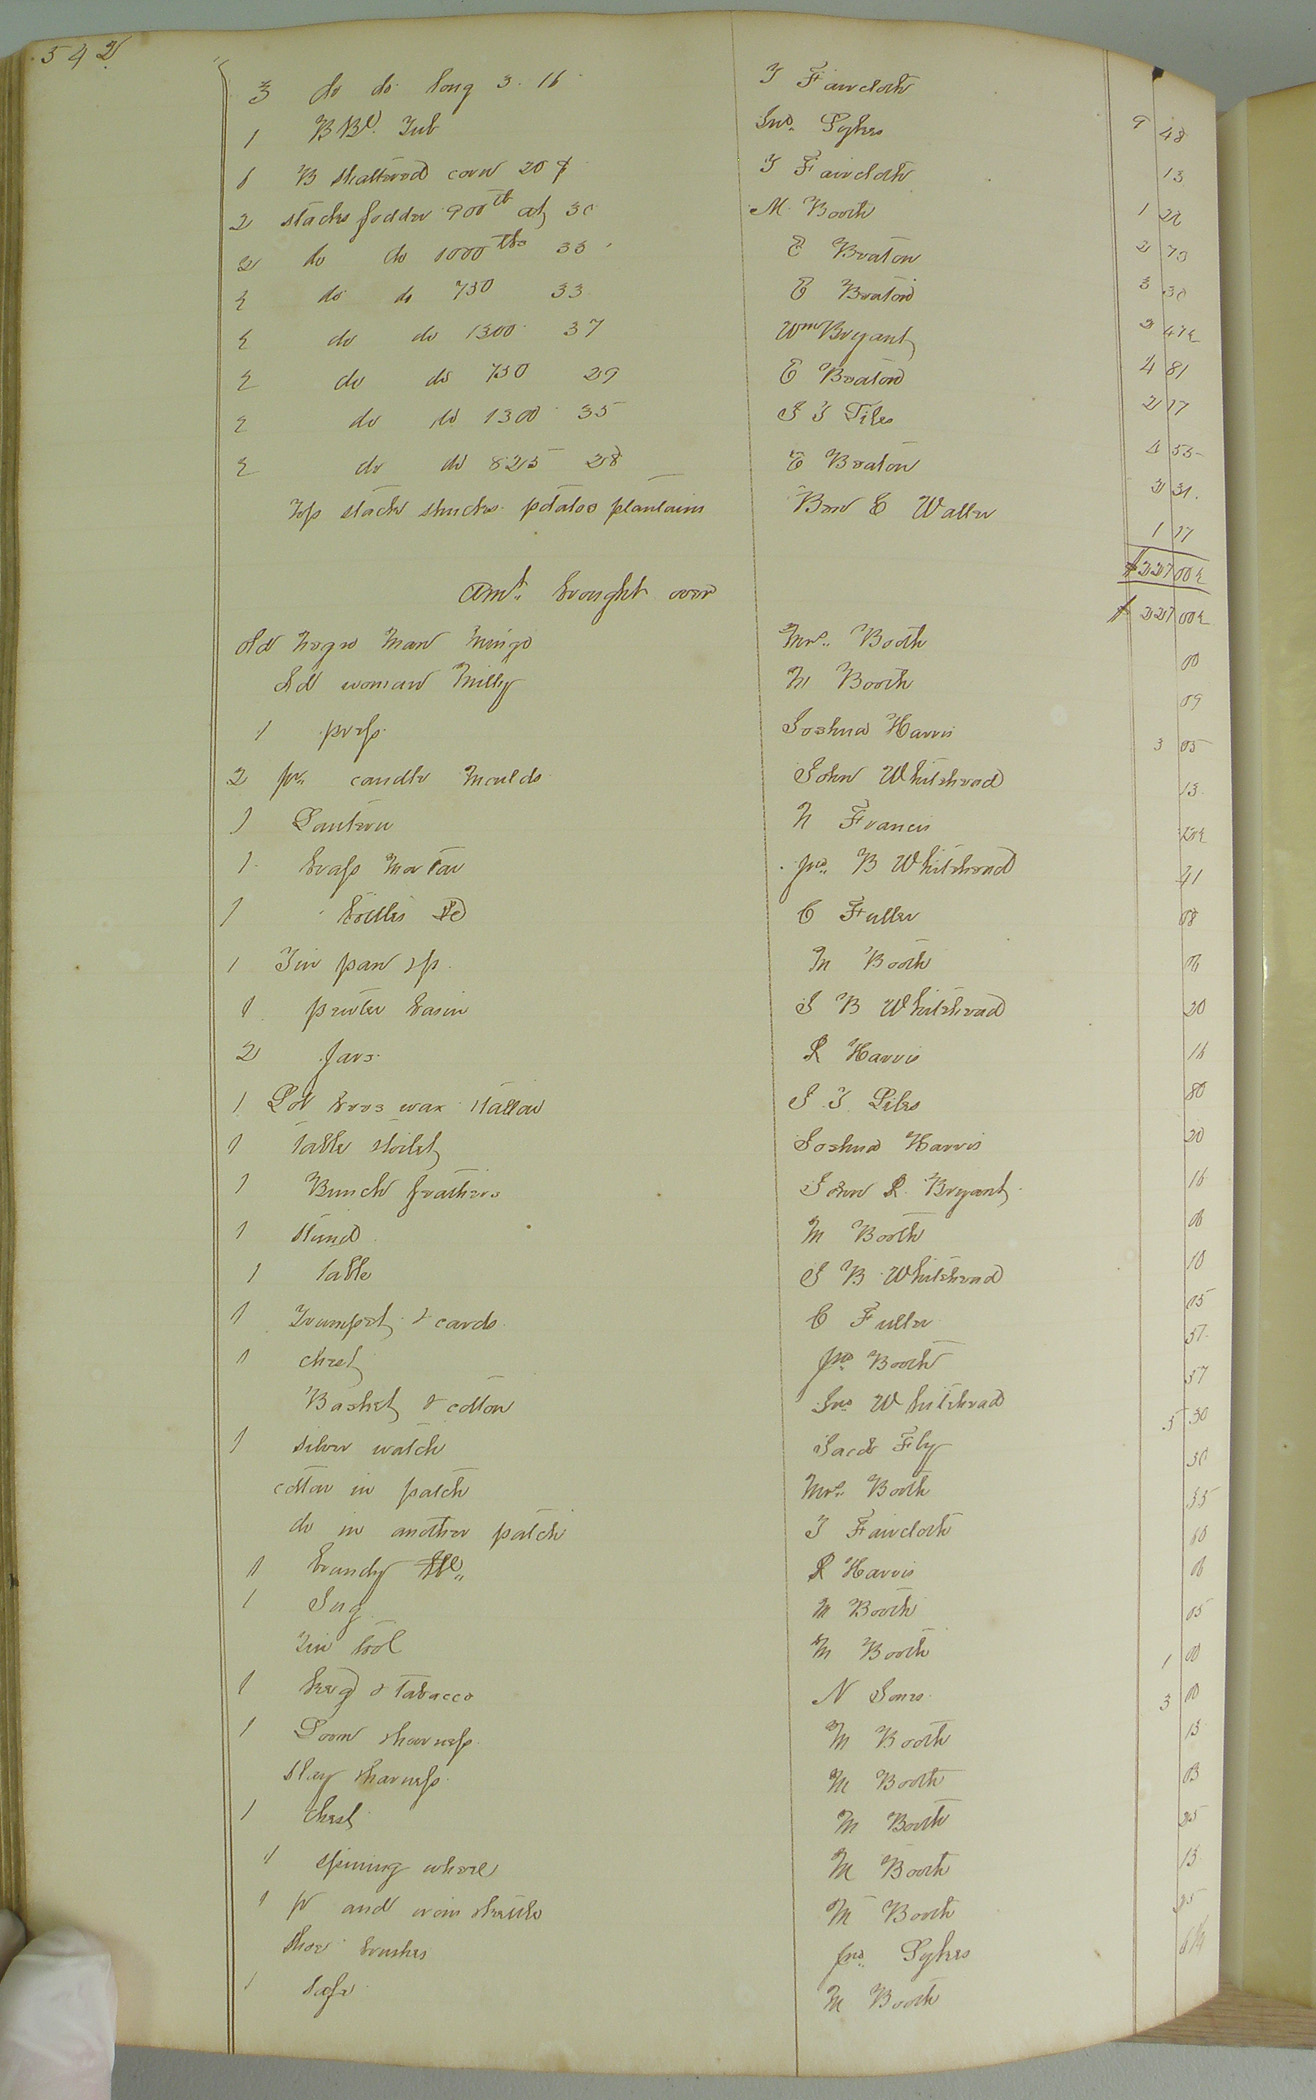 542
3 do do long 3.16 T Faircloth 9 48
1 BBl. Tub Jno. Sykes 13
6 B shattered corn 20 ¢ T Faircloth 1 20
2 stacks fodder 900 lb at 30 M. Booth 2 70
2 do do 1000 lbs 33 E Braton 3 30
2 do do 750 33 E Braton 2 47½
2 do do 1300 37 Wm Bryant 4 81
2 do do 750 29 E Braton 2 17
2 do do 1300 35 J T Liles 4 55
2 do do 825 28 E Braton 2 31
Top stack shucks potatoe plantains Ben E Waller 1 17
$227 00½
Amt. brought over $227 00½
Old Negro Man Mingo Mrs. Booth 00
Old woman Milly M Booth 09
1 press Joshua Harris 3 05
2 pr candle moulds John Whitehead 13
1 Lantern N Francis
1 brass Mortar Jno. B Whitehead 41
1 bottles &c C Fuller 08
1 Tin pan M Booth 06
1 pewter basin J B Whitehead 20
2 Jars R Harris 16
1 Lot bees wax & tallow J T Liles 80
1 table & toilet Joshua Harris 20
1 Bunch feathers John R. Bryant 16
1 stand M Booth 06
1 table J B Whitehead 10
1 Trumpet & cards C Fuller 05
1 chest Jno Booth 57
Basket & cotton Jno Whitehead 57
1 silver watch Jacob Fly 5 30
cotton in patch Mrs. Booth 30
do in another patch T Faircloth 55
1 brandy R Harris 60
1 Jug M Booth 06
Tin M Booth 05
1 keg & tabacco N Jones 1 00
1 Loom & harness M Booth 3 00
Slay & harness M Booth 13
1 Chest M Booth 03
1 spining wheel M Booth 25
1 pr and irons & kettle M Booth 15
Shoe brushes Jno. Sykes
1 Safe M Booth